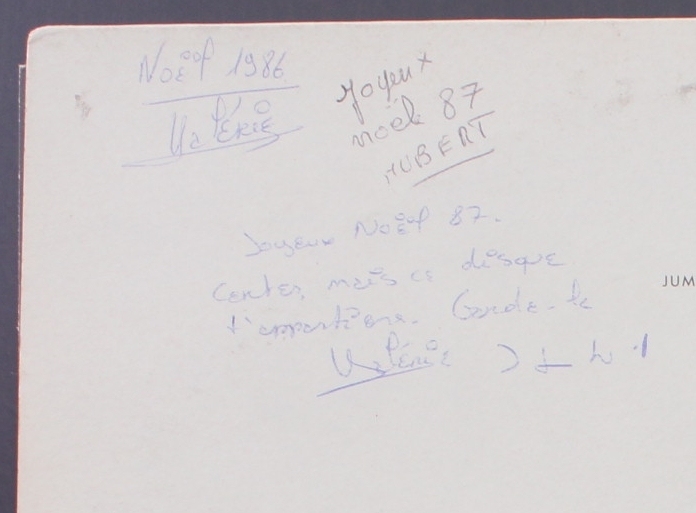 Noël 1986
Valérie
Joyeux
noël 87
HUBERT
Joyeux Noël 87.
certes, mais ce disque
t'appartiens. Garde-le
Valérie
JUM